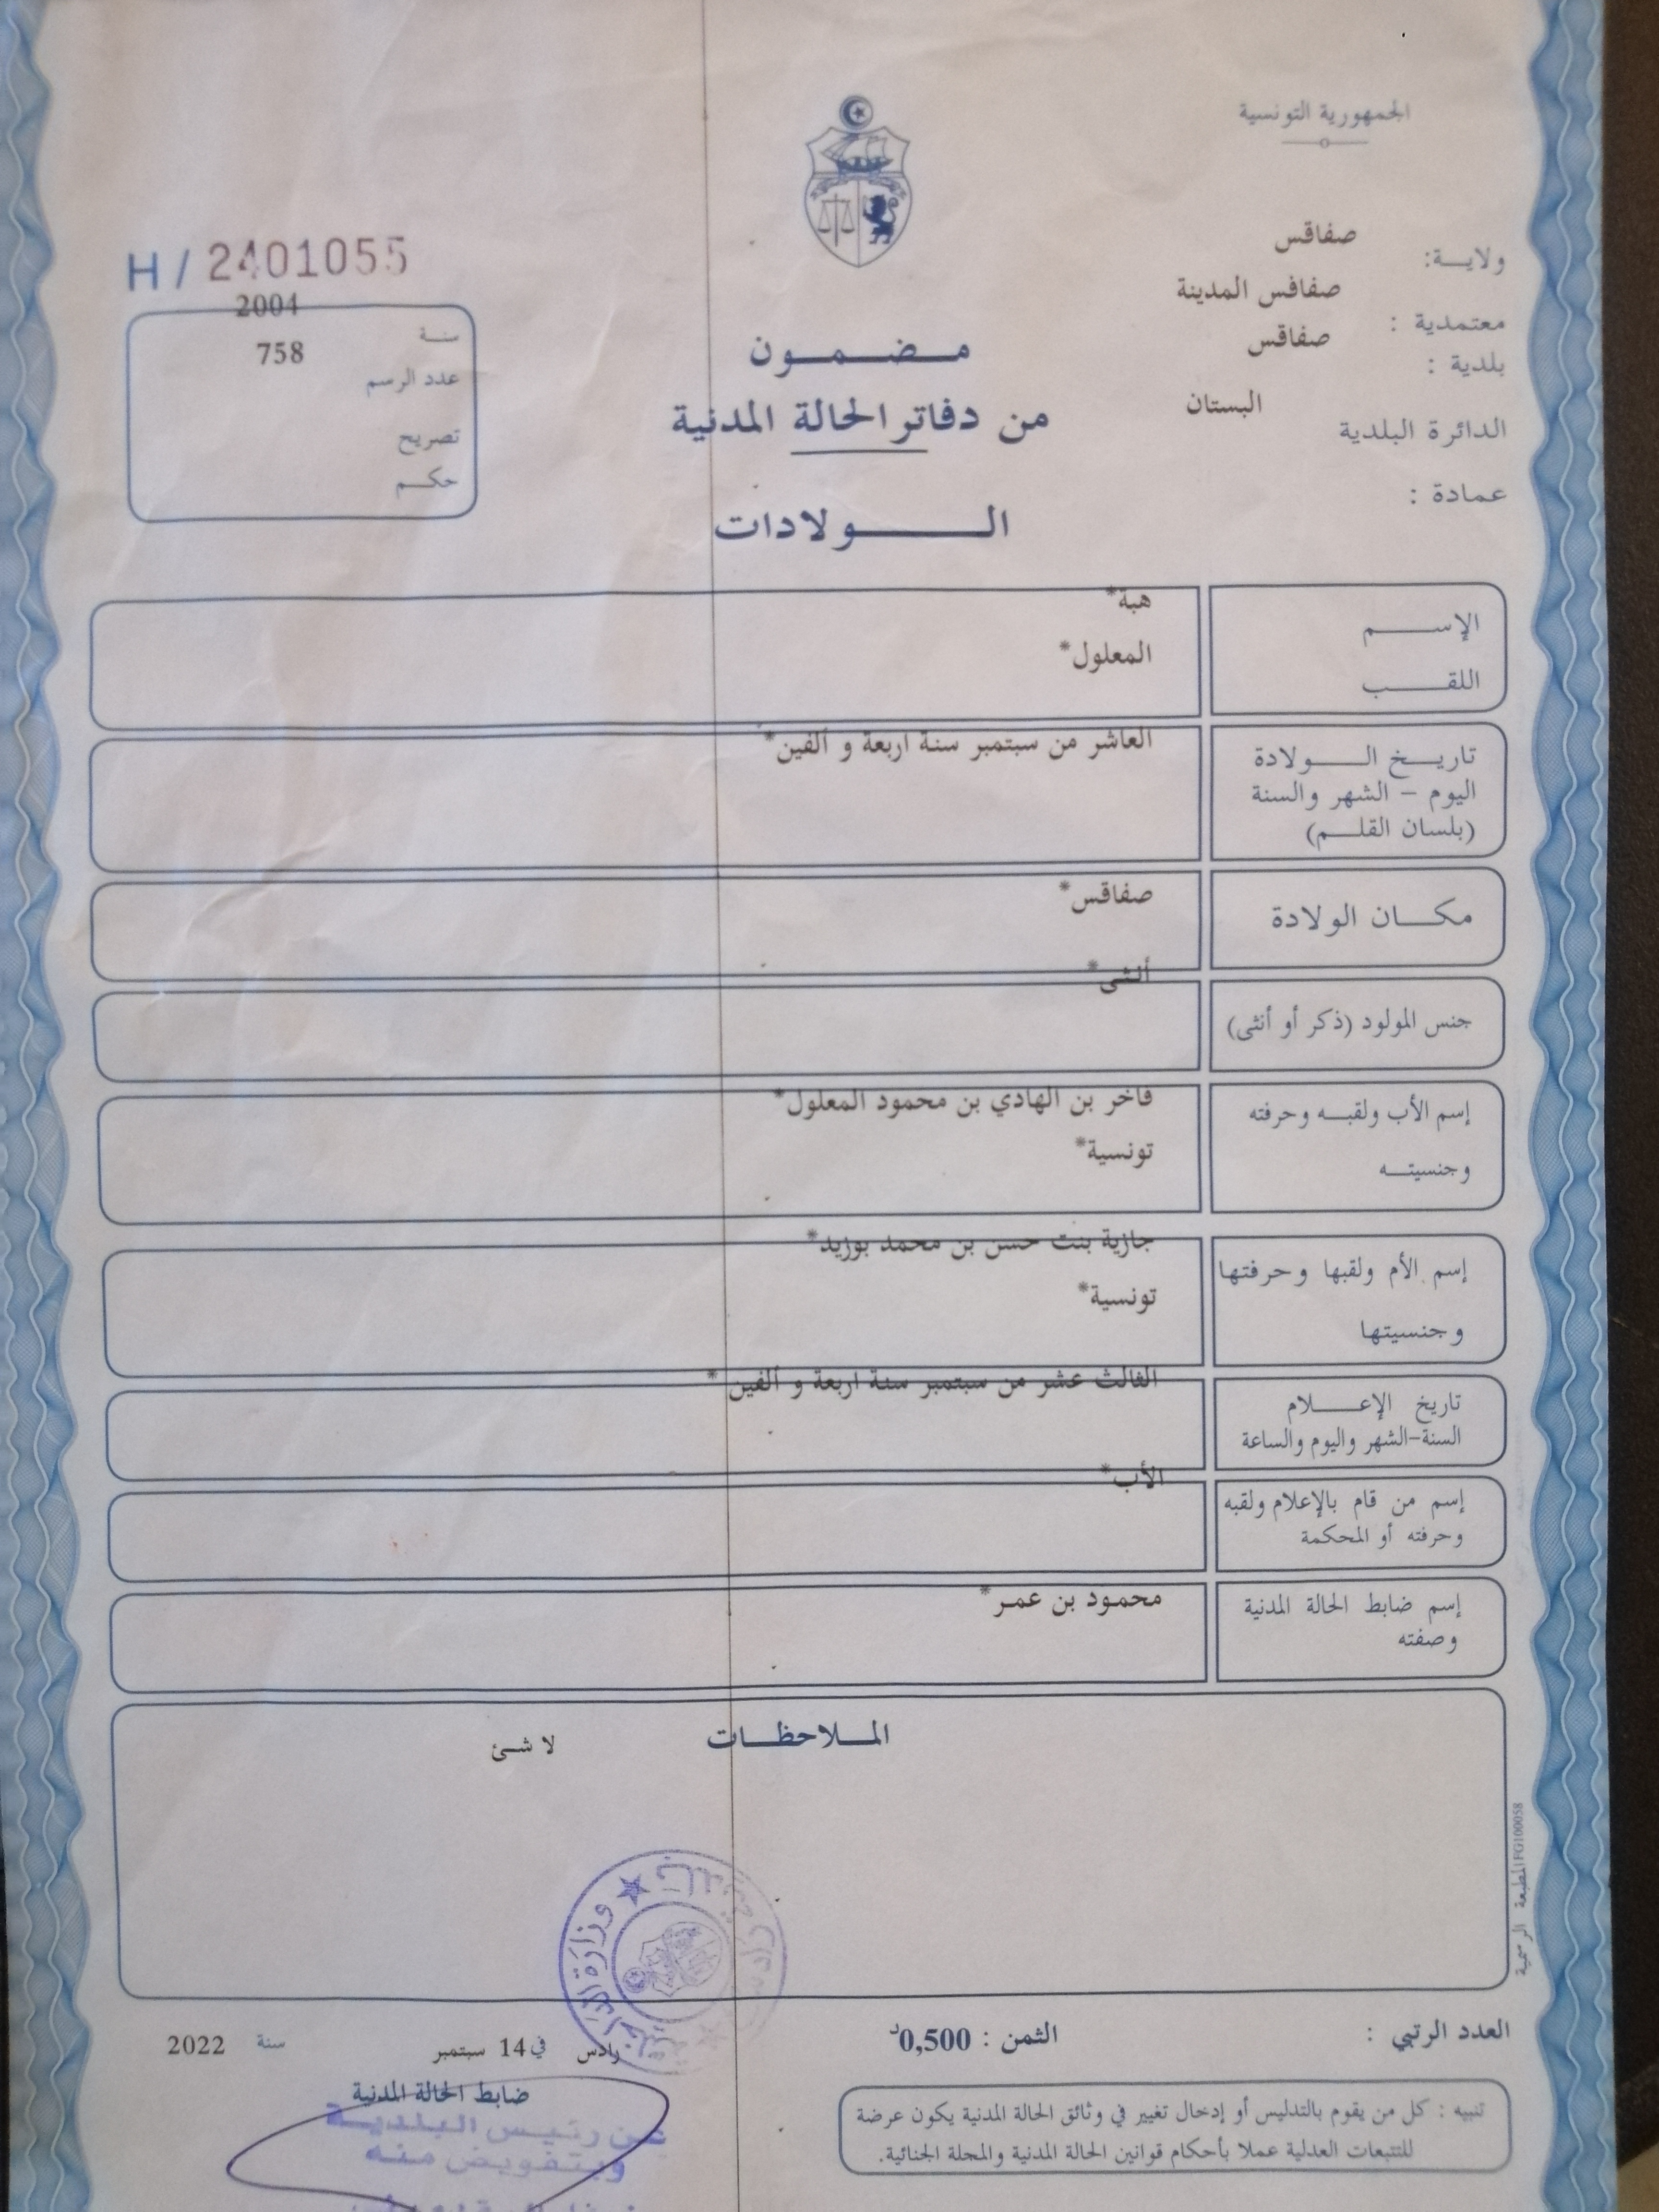 الجمهورية التونسية
ولايـــة: صفاقس
معتمدية : صفاقس المدينة
بلدية : صفاقس
الدائرة البلدية البستان
عمادة :
H / 2401055
سنة 2004
عدد الرسم 758
تصريح
حكم
مضمون
من دفاتر الحالة المدنية
الولادات
الإسم هبة*
اللقب المعلول*
تاريخ الولادة العاشر من سبتمبر سنة اربعة و ألفين*
اليوم – الشهر والسنة
(بلسان القلم)
مكان الولادة صفاقس*
جنس المولود (ذكر أو أنثى) أنثى*
إسم الأب ولقبه وحرفته فاخر بن الهادي بن محمود المعلول*
وجنسيته تونسية*
إسم الأم ولقبها وحرفتها جازية بنت حسن بن محمد بوزيد*
وجنسيتها تونسية*
تاريخ الإعلام الثالث عشر من سبتمبر سنة اربعة و ألفين *
السنة-الشهر واليوم والساعة
إسم من قام بالإعلام ولقبه الأب*
وحرفته أو المحكمة
إسم ضابط الحالة المدنية محمود بن عمر*
وصفته
الملاحظات
لا شئ
المطبعة الرسمية FG100058
وزارة الداخلية
العدد الرتبي :
الثمن : 0,500د
رادس في 14 سبتمبر سنة 2022
ضابط الحالة المدنية
عن رئيس البلدية
وبتفويض منه
تنبيه : كل من يقوم بالتدليس أو إدخال تغيير في وثائق الحالة المدنية يكون عرضة
للتتبعات العدلية عملا بأحكام قوانين الحالة المدنية والمجلة الجنائية.